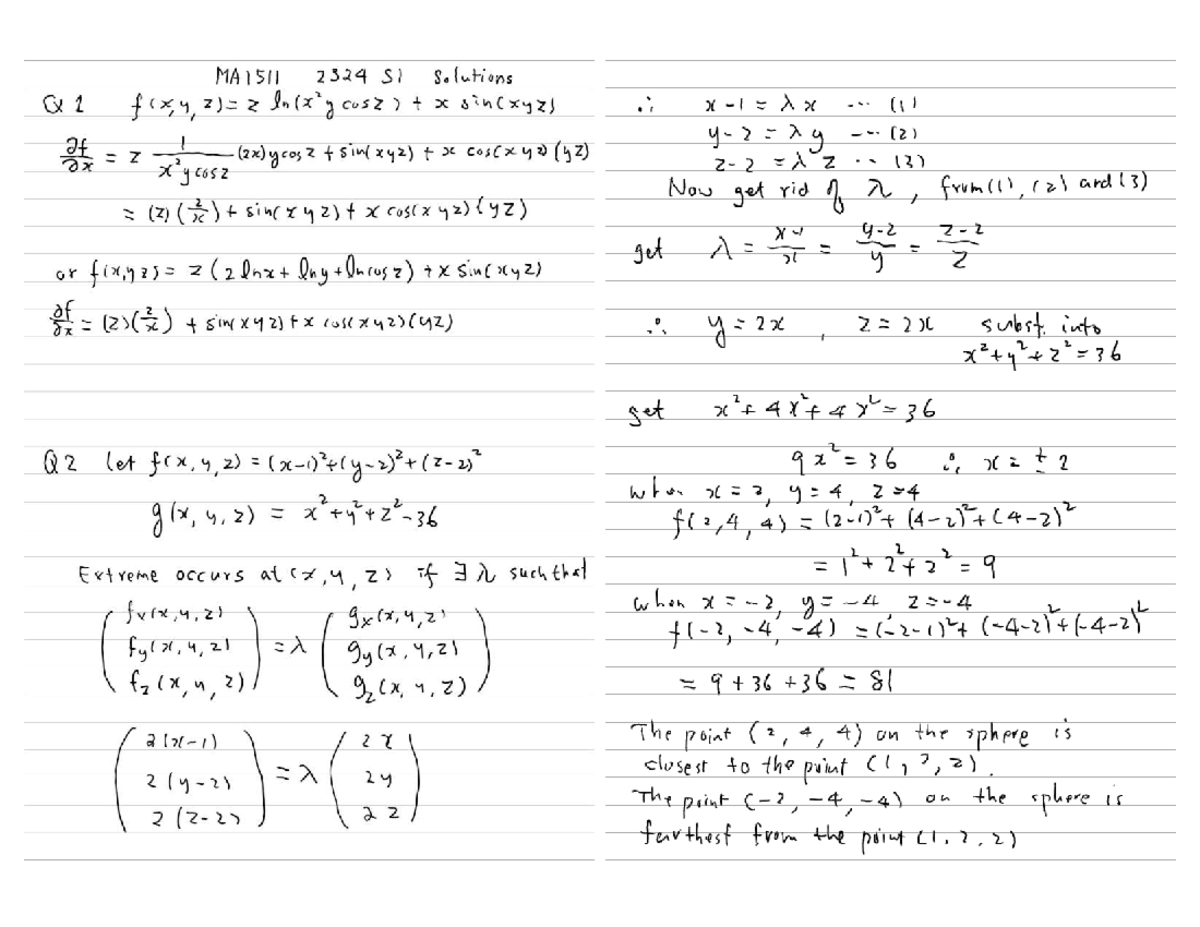 MA1511 2324 S1 Solutions
Q1 f(x,y,z)= z ln(x²y cosz) + x sin(xyz)
∂f/∂x = z 1/(x²y cosz) (2x)y cos z + sin(xyz) + x cos(xyz)(yz)
= (z)(2/x) + sin(xyz) + x cos(xyz)(yz)
or f(x,y,z) = z(2lnx + lny + ln cos z) + x sin(xyz)
∂f/∂x = (z)(2/x) + sin(xyz) + x cos(xyz)(yz)
Q2 let f(x,y,z) = (x-1)²+(y-2)²+(z-2)²
g(x,y,z) = x²+y²+z²-36
Extreme occurs at (x,y,z) if ∃ λ such that
(fx(x,y,z)) = λ (gx(x,y,z))
(fy(x,y,z)) (gy(x,y,z))
(fz(x,y,z)) (gz(x,y,z))
(2(x-1)) = λ (2x)
(2(y-2)) (2y)
(2(z-2)) (2z)
∴ x-1 = λx --- (1)
y-2 = λy --- (2)
z-2 = λz -- (3)
Now get rid of λ, from (1), (2) and (3)
get λ = (x-1)/x = (y-2)/y = (z-2)/z
∴ y = 2x , z = 2x subst. into
x²+y²+z²=36
get x²+4x²+4x²=36
9x²=36 ∴ x = ±2
when x=2, y=4, z=4
f(2,4,4) = (2-1)²+(4-2)²+(4-2)²
= 1²+2²+2² = 9
when x=-2, y=-4 z=-4
f(-2,-4,-4) = (-2-1)²+(-4-2)²+(-4-2)²
= 9+36+36 = 81
The point (2,4,4) on the sphere is
closest to the point (1,2,2).
The point (-2,-4,-4) on the sphere is
farthest from the point (1,2,2)